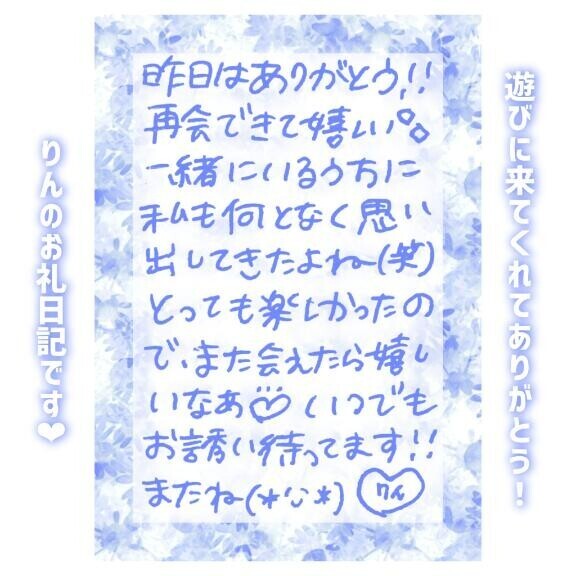 遊びに来てくれてありがとう！
昨日はありがとう!!
再会できて嬉しい
一緒にいるうちに
私も何となく思い
出してきたよねー(笑)
とっても楽しかったの
で、また会えたら嬉し
いなあ♡ いつでも
お誘い待ってます!!
またね(*'ᵕ'*)
りんのお礼日記です❤